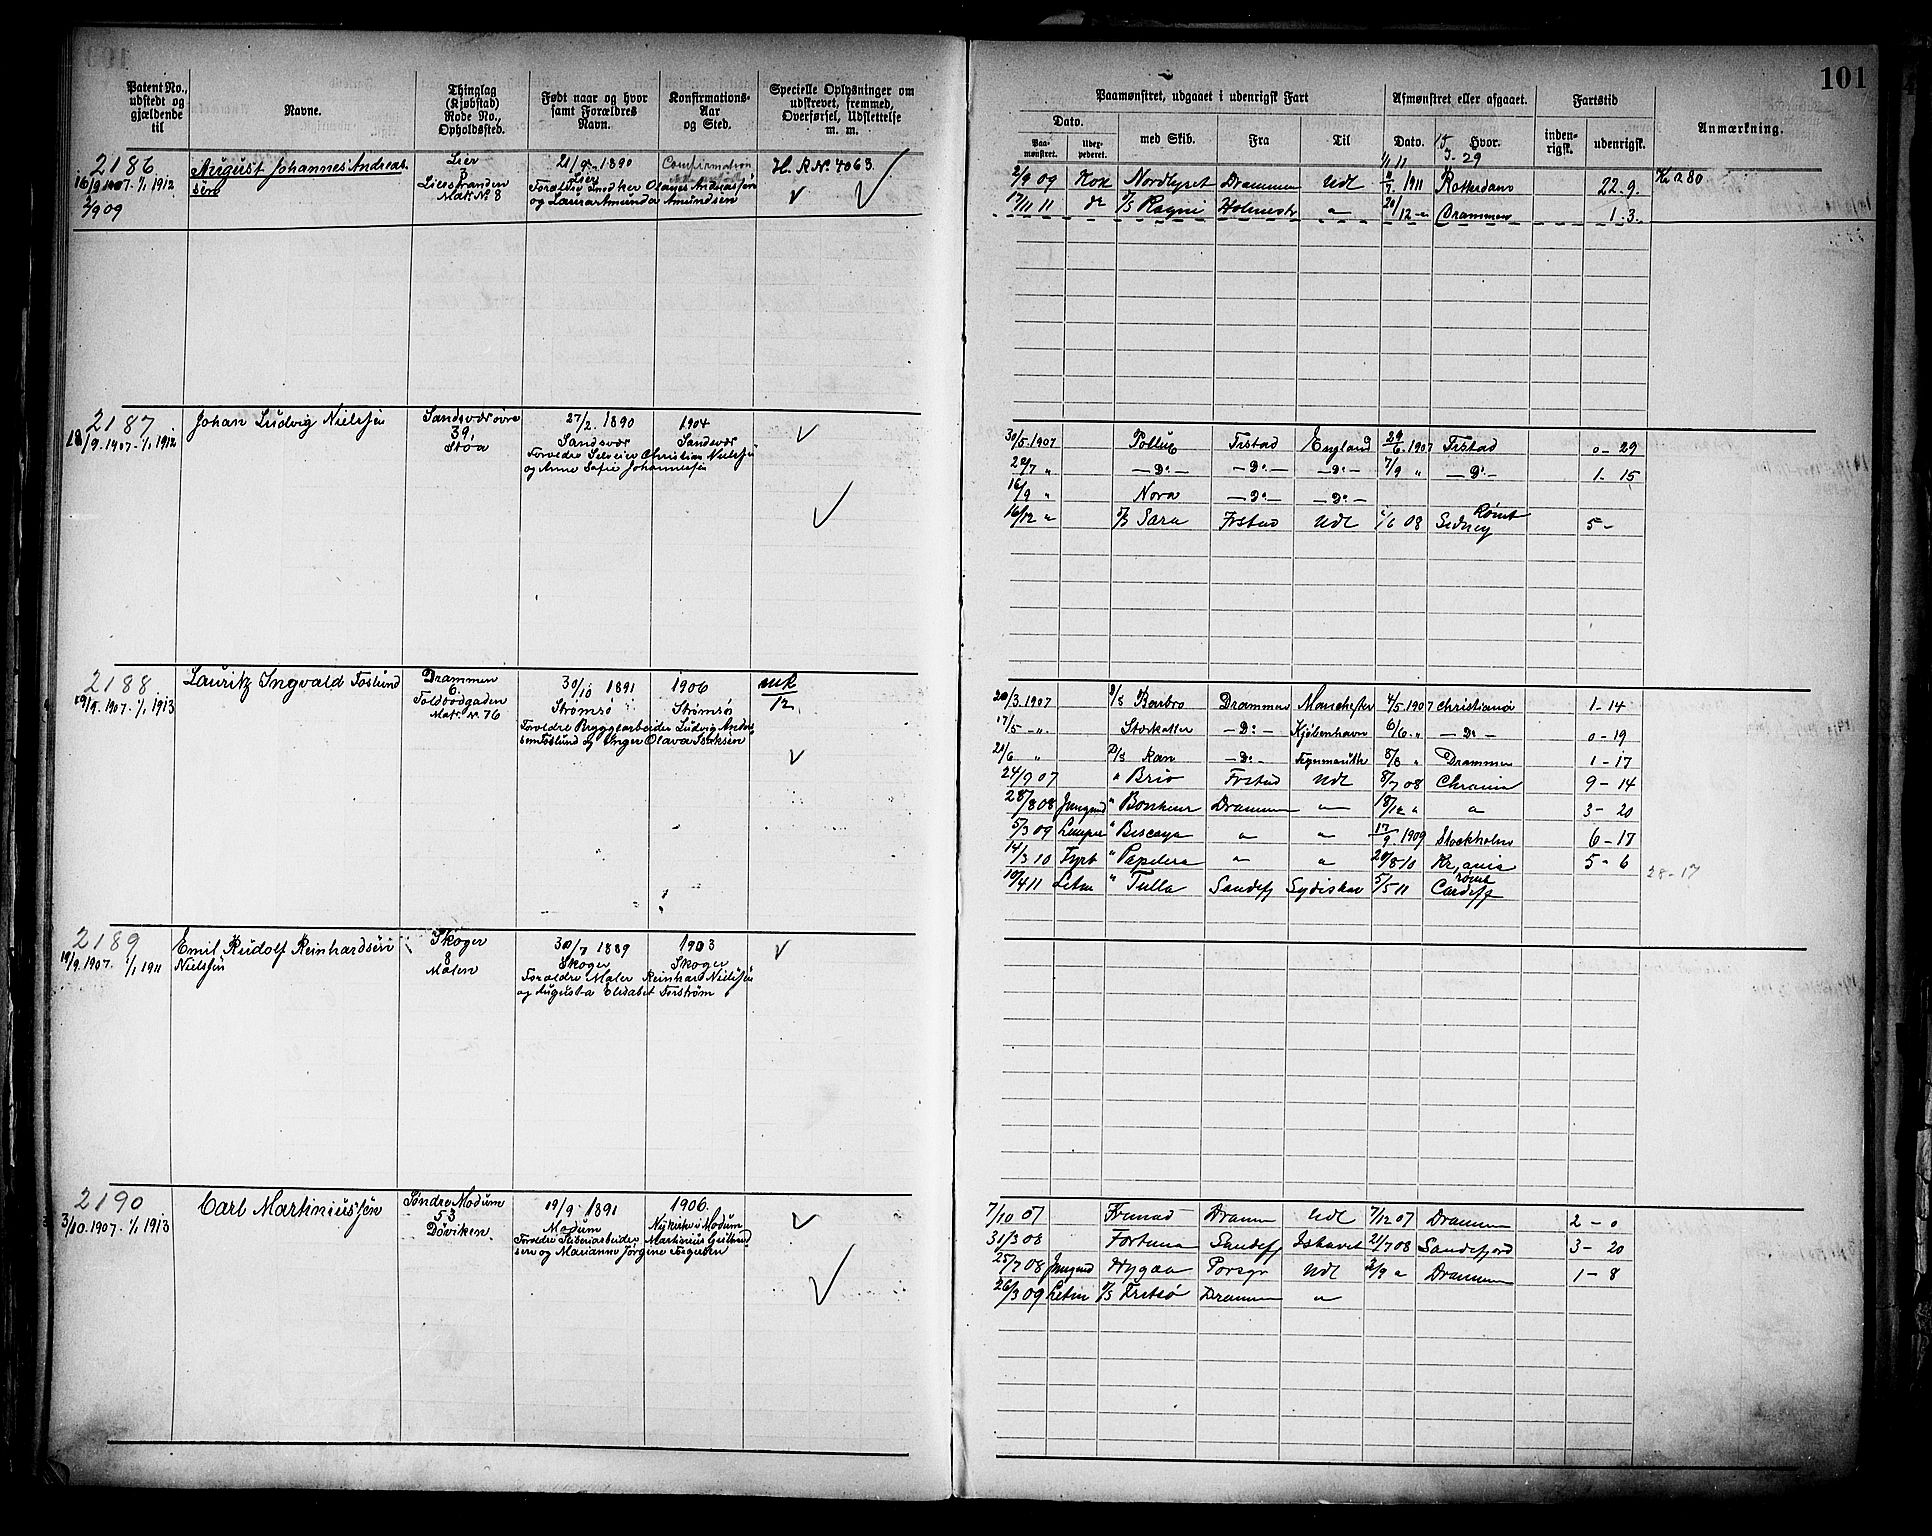 101
Patent No., udstedt og gjældende til
Navne.
Thinglag (Kjøbstad) Rode No., Opholdssteb.
Født naar og hvor samt Forældres Navn.
Konfirmations- Aar og Sted.
Specielle Oplysninger om udskrevet, fremmed, Overførsel, Udslettelse m. m.
Paamønstret, udgaaet i udenrigsk Fart
Afmønstret eller afgaaet.
Fartstid
Anmærkning.
Dato.
Paamønstret.
med Skib.
Fra
Til
Dato.
Hvor.
indenrigsk.
udenrigsk.
2186
16/9 1907. 1/1 1912
2/9 09
August Johannes Andreassen
Lier
Lierstranden
Mat. No 8
21/9 1890
Lier
og Laura Amunda Amundsen
H. R. No. 4063
2/9 09 Kok Nordlyset Drammen Udl 1911 Rotterdam 22 9. Kr 280
17/11 11 do D/S Ragni Holmestr " 20/12 " Drammen 1. 3.
2187
/9. 1907. 1/1 1912
Johan Ludvig Nielsen
Sandsvær øvre
39,
Støa
27/2. 1890
Sandsvær
Christian Nielsen
og Anne Sofie Johannesen
1904
Sandsvær
30/5. 1907 Pollux Frstad England 29/6. 1907 Frstad 0 - 29
29/7 " - Do - - Do - - Do - 7/9 " - Do - 1 - 15
16/9 " Nora - Do - - Do -
16/12 " D/S Sara Frstad Udl 1/6 08 Sidney Rømt 5 -
2188
19/9. 1907. 1/1 1913
Lauritz Ingvald Foslund
Drammen
6.
Toldbodgaden
Mat. No. 76
30/10 1891
Strømsø
Forældre Bryggearbeider Ludvig Andersen Foslund og Inger Olava Isaksen
1906
Strømsø
mk
12
20/3. 1907 D/S Barbro Drammen Manchester 4/5. 1907 Christiania 1 - 14
17/5 - " Storkatten - Do - Kjøbenhavn 6/6. " - Do - 0 - 19
21/6 " D/S Ran - Do - 8/8 " Drammen 1 - 17
24/9 07 " Brio Frstad Udl 8/7 08 Chrania 9 - 14
28/8 08 Jungmd " Bonheur Drammen " 18/12 " " 3 - 20
5/3 09 Lemper " Biscaya " " 17/9. 1909 Stockholm 6 - 17
14/3 10 Fyrb " Papelera " " 20/8 10 Kr.ania 5 - 6
10/4 11 Letm " Tulla Sandefj Sydishav 5/5 11 Cardiff rømt
28 - 17
2189
19/9. 1907. 1/1 1911
Emil Rudolf Reinhardsen
Nielsen
Skoger
8
Malen
30/7 1889
Skoger
Forældre Maler Reinhard Nielsen
og Augusta Elisabet Forstrøm
1903
Skoger
2190
3/10. 1907. 1/1 1913
Carl Martiniussen
Søndre Modum
53
Døviken.
19/9. 1891
Modum
Forældre Sliberiarbeider Martinius
og Marianne Jørgine
1906.
Nykirke i Modum
7/10 07 Dramm Udl 7/12 07 Drammen 2 - 0
31/3 08 Fortuna Sandefj Ishavet 21/7 08 Sandefjord 3 - 20
25/7 08 Jungmd Hygæa Porsgr Udl 2/9 " Drammen 1 - 8
26/3 09 Letm D/S Fritsø Drammen "